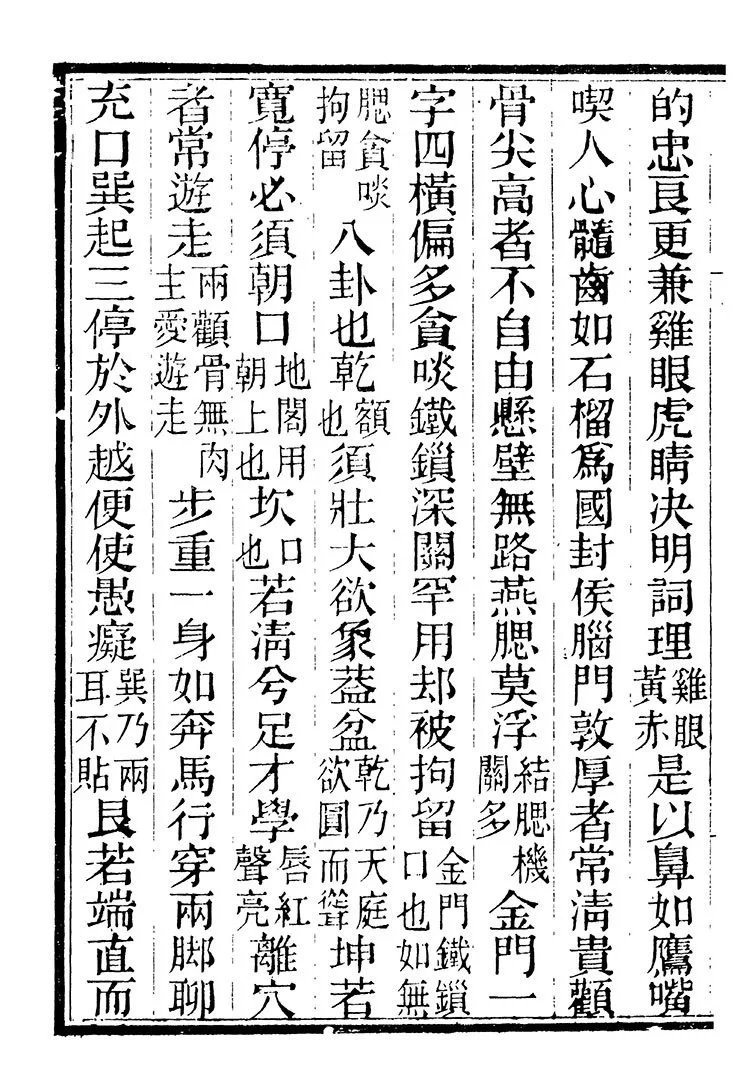 的忠良更兼雞眼虎睛决明詞理雞眼黃赤是以鼻如鷹嘴
喫人心髓齒如石榴爲國封侯腦門敦厚者常淸貴顴
骨尖高者不自由懸壁無路燕腮莫浮結腮機關多金門一
字四橫偏多貧啖鐵鎖深關罕用却被拘留金門鐵鎖口也如無
腮貧啖拘留八卦也乾額也須壯大欲象葢盆乾乃天庭欲圓而聳坤若
寬停必須朝口地閣用朝上也坎口也若淸兮足才學唇紅聲亮離穴
者常遊走兩顴骨無肉主愛遊走步重一身如奔馬行穿兩脚聊
充口巽起三停於外越便使愚癡巽乃兩耳不貼艮若端直而